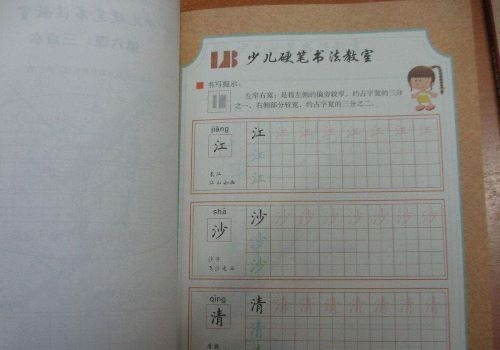 少儿硬笔书法教室
书写提示:
左窄右宽:是指左侧的偏旁较窄,约占字宽的三分
之一,右侧部分较宽,约占字宽的三分之二。
jiāng
江 江 江 江 江 江 江 江 江
江
江
长江
江山如画
shā
沙 沙 沙 沙 沙 沙 沙 沙 沙
沙
沙
沙子
飞沙走石
qīng
清 清 清 清 清 清 清 清 清
清
清